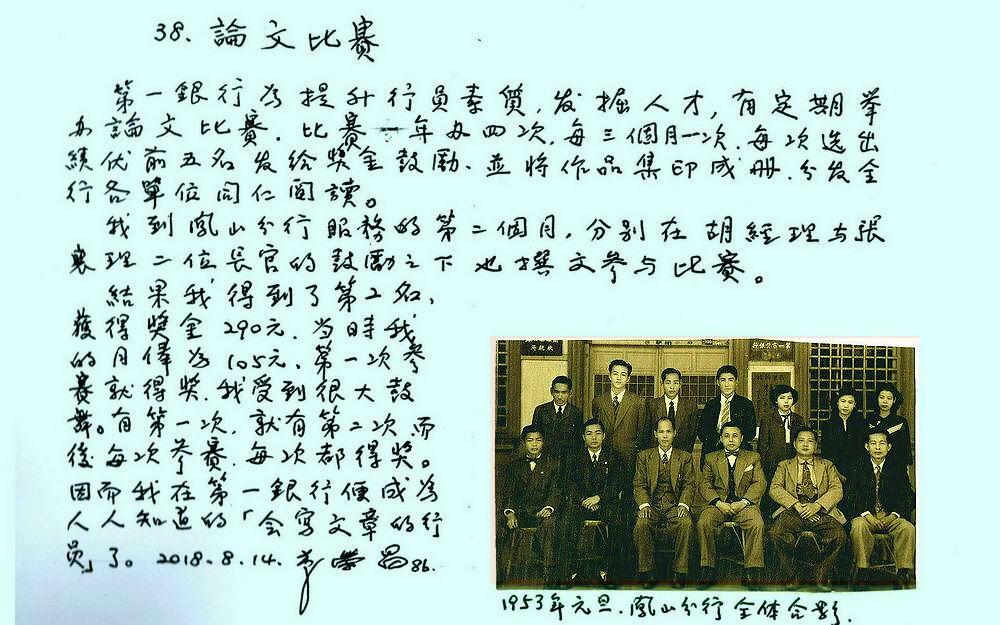 38. 論文比賽
第一銀行為提升行員素質，发掘人才，有定期举
办論文比賽．比賽一年办四次，每三個月一次．每次选出
績优前五名发给獎金鼓勵．並將作品集印成冊．分发全
行各單位同仁閱讀。
我到鳳山分行服務的第二個月．分別在胡經理与張
襄理二位長官的鼓勵之下也撰文參与比賽。
結果我得到了第2名，
獲得獎金290元．当時我
的月俸為105元．第一次參
賽就得奖．我受到很大鼓
舞。有第一次．就有第二次而
後每次參賽．每次都得奖。
因而我在第一銀行便成為
人人知道的「会写文章的行
員」了。2018.8.14. 86.
1953年元旦．鳳山分行全体合影．